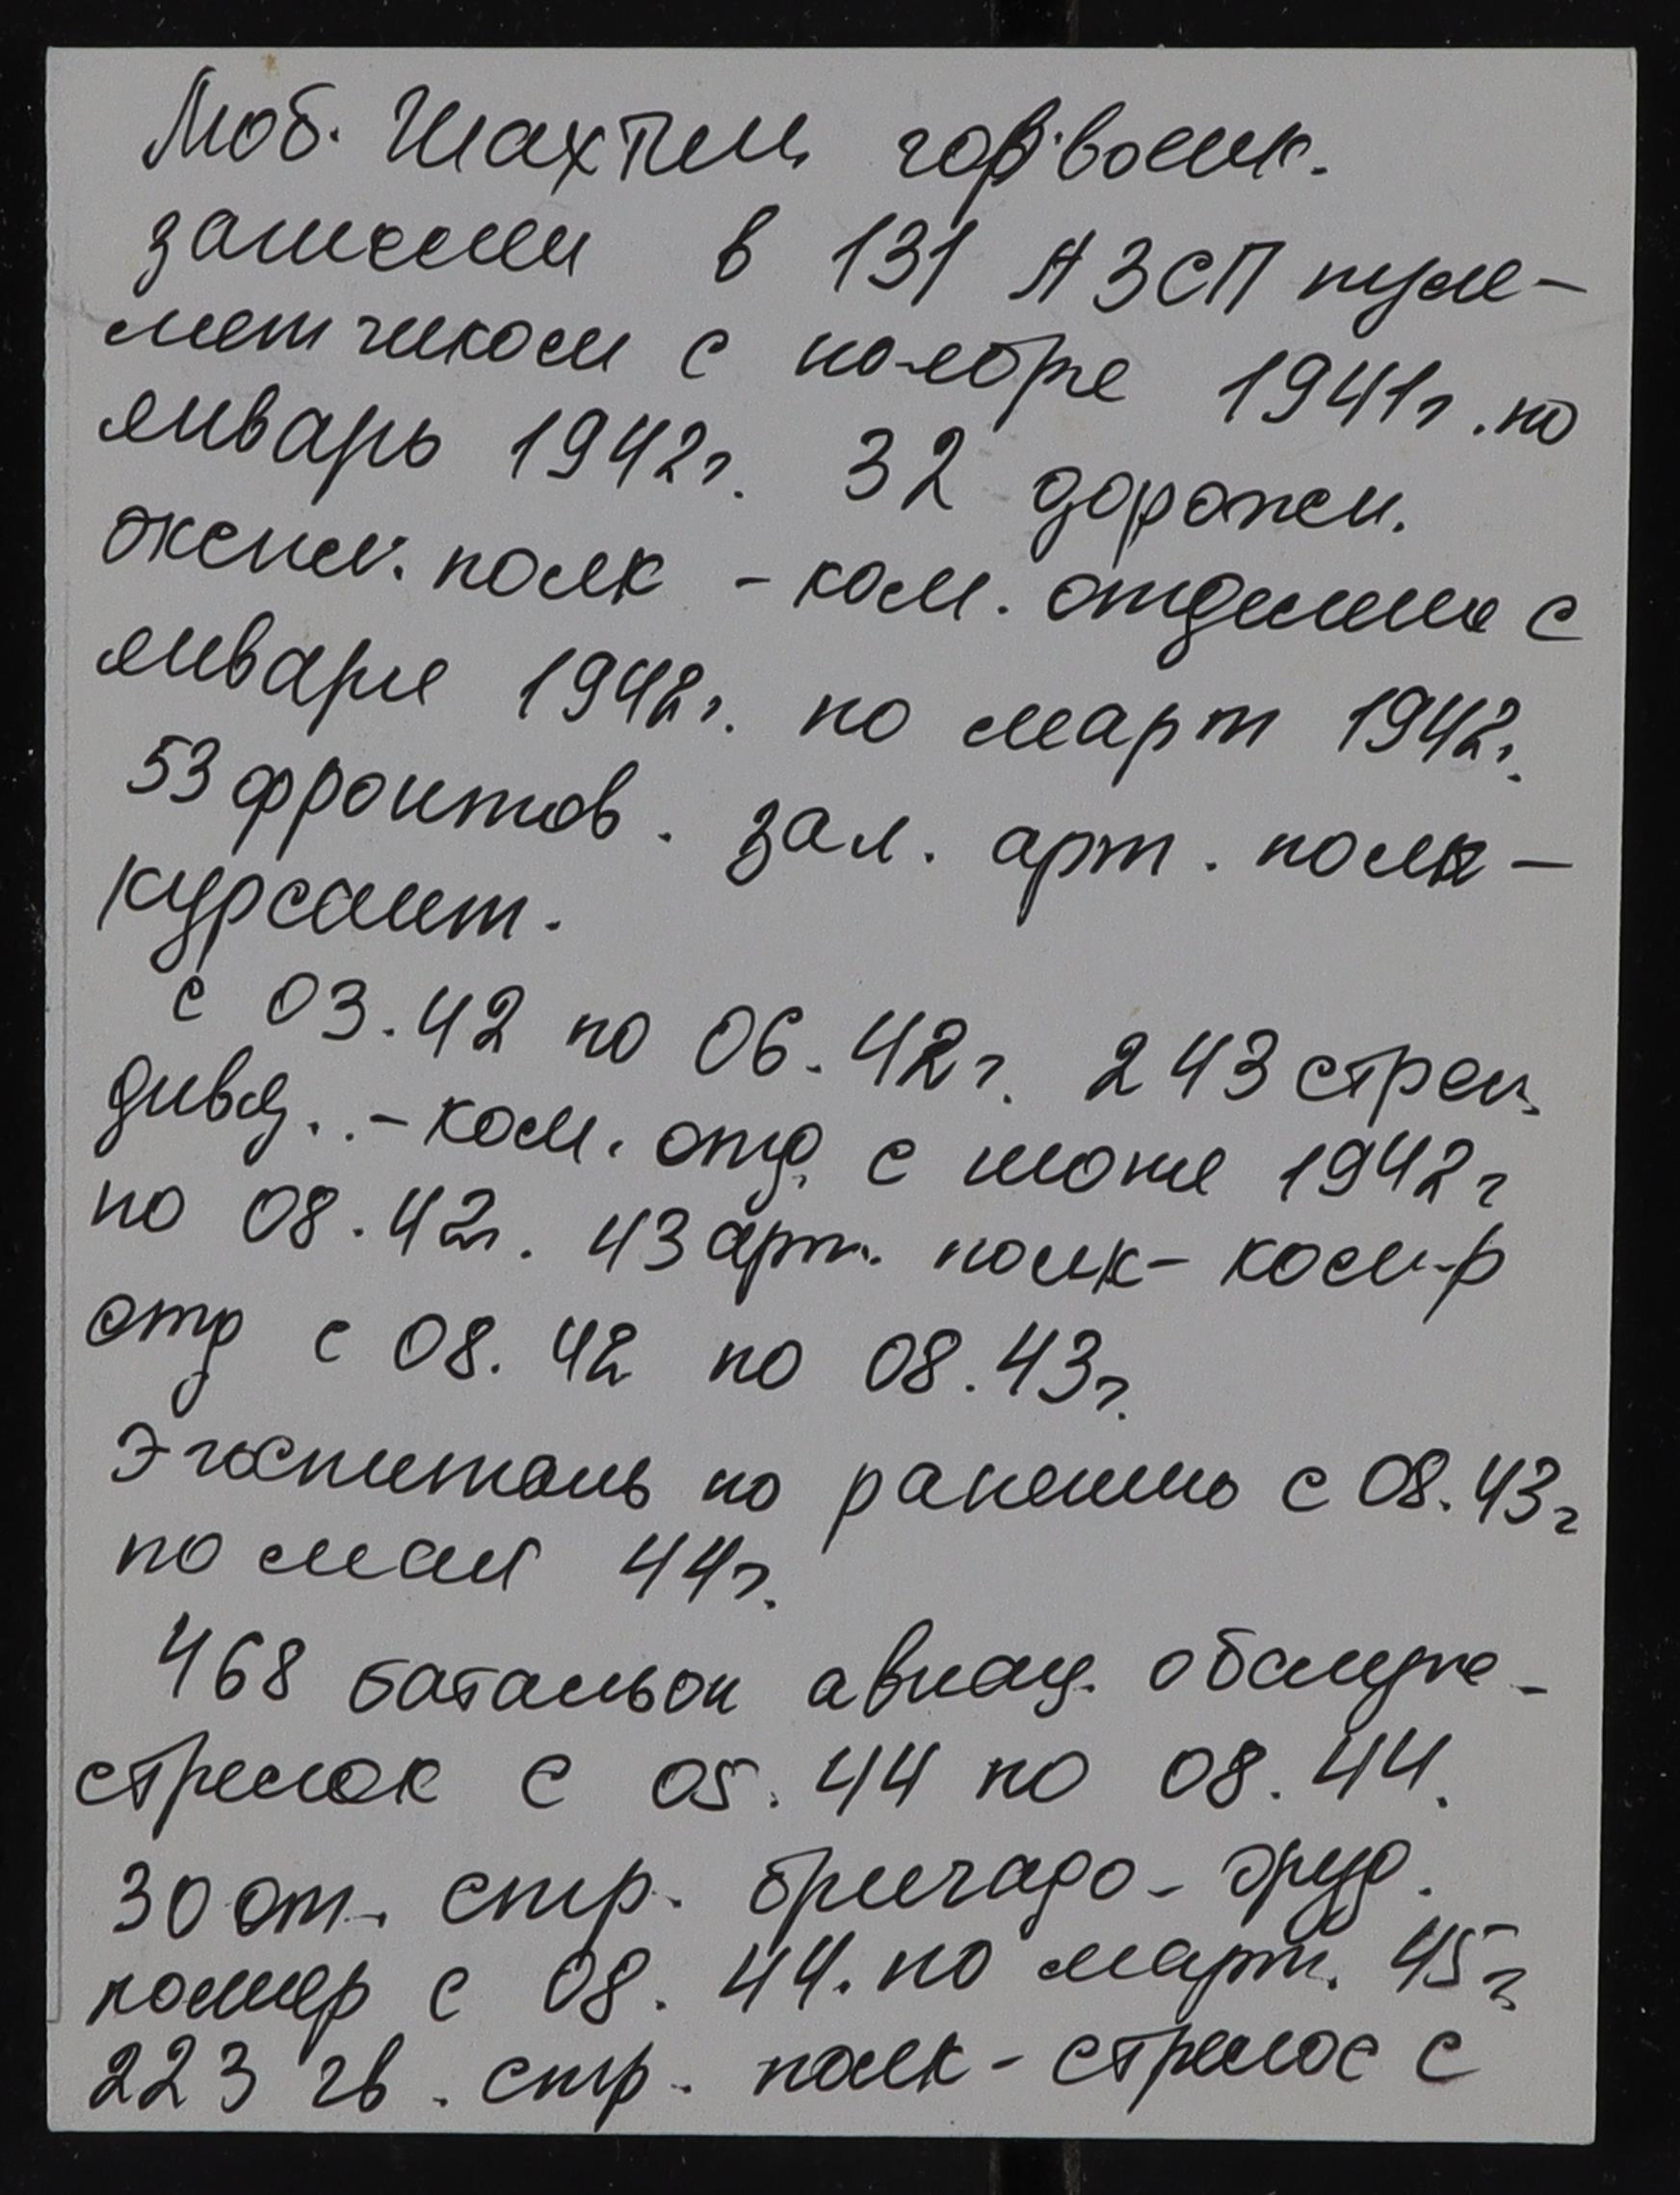 Моб. Шахтин. гор.военк.
зашесии в 131 АЗСП пуле-
метчиком с ноября 1941г. по
январь 1942г. 32 дорожн.
эксплу. полк - ком. отдиния с
января 1942г. по март 1942г.
53 фронтов. зап. арт. полк -
курсант.
с 03.42 по 06.42г. 243 стрел.
дивиз. - ком. отд. с июня 1942г
по 08.42г. 43 арт. полк - ком-р
отд с 08.42 по 08.43г.
Э госпиталь по ранению с 08.43г
по май 44г.
468 батальон авиац. обслуж -
стрелок с 05.44 по 08.44.
30 от. стр. бригада - оруд.
номер с 08.44. по март. 45г
223 гв. стр. полк - стрелок с